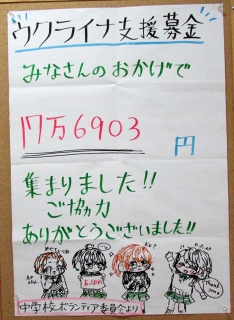 ウクライナ支援募金
みなさんのおかげで
17万6903
円
集まりました!!
ご協力
ありがとうございました!!
中学校ボランティア委員会より